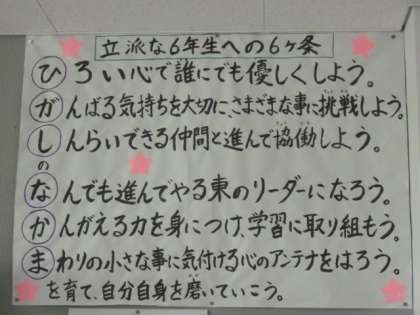 立派な6年生への6ヶ条
ひろい心で誰にでも優しくしよう。
がんばる気持ちを大切に、さまざまな事に挑戦しよう。
しんらいできる仲間と進んで協働しよう。
の
なんでも進んでやる東のリーダーになろう。
かんがえる力を身につけ、学習に取り組もう。
まわりの小さな事に気付ける心のアンテナをはろう。
を育て、自分自身を磨いていこう。